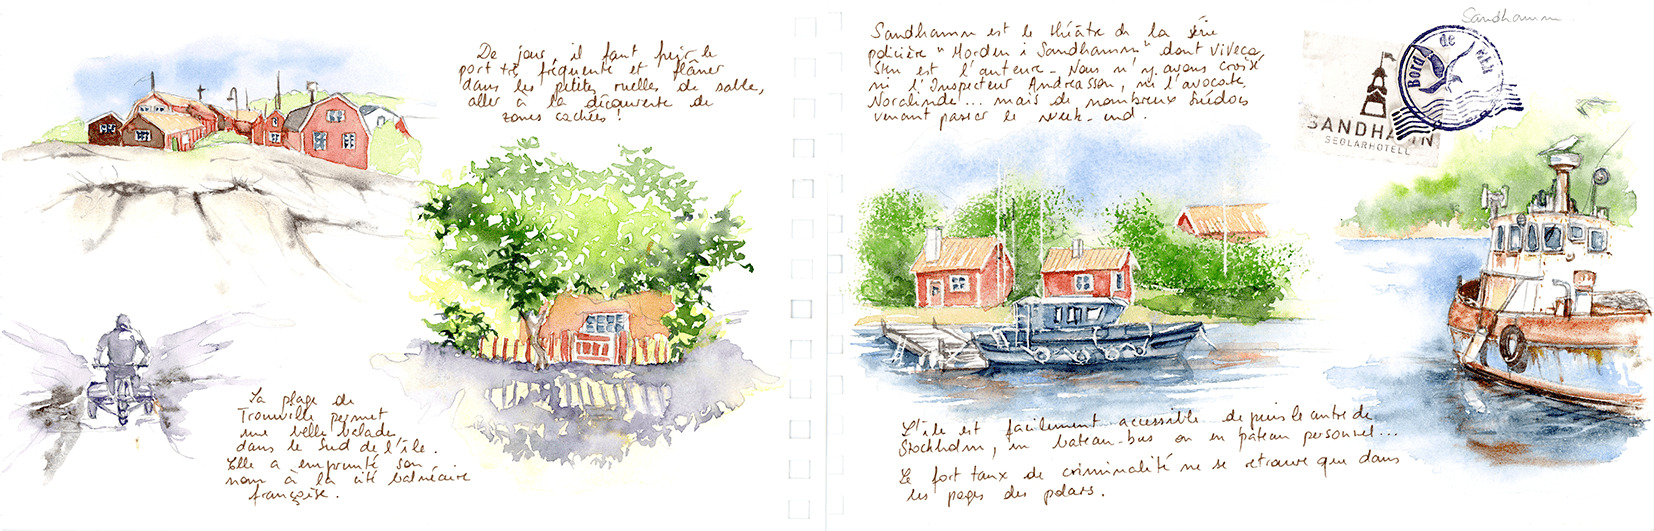 De jour, il faut fuir le
port très fréquenté et flâner
dans les petites ruelles de sable,
aller à la découverte de
zones cachées !
La plage de
Trouville permet
une belle balade
dans le Sud de l'île.
Elle a emprunté son
nom à la cité balnéaire
française.
Sandhamn est le théâtre de la série
policière "Morden i Sandhamn" dont Viveca
Sten est l'auteure - Nous n'y avons croisé
ni l'Inspecteur Andreasson, ni l'avocate
Noralinde... mais de nombreux Suédois
venant passer le week-end.
Sandhamn
Bord de Mer
SANDHAMN
SEGLARHOTELL
L'île est facilement accessible depuis le centre de
Stockholm, en bateau-bus ou en bateau personnel...
Le fort taux de criminalité ne se retrouve que dans
les pages des polars.